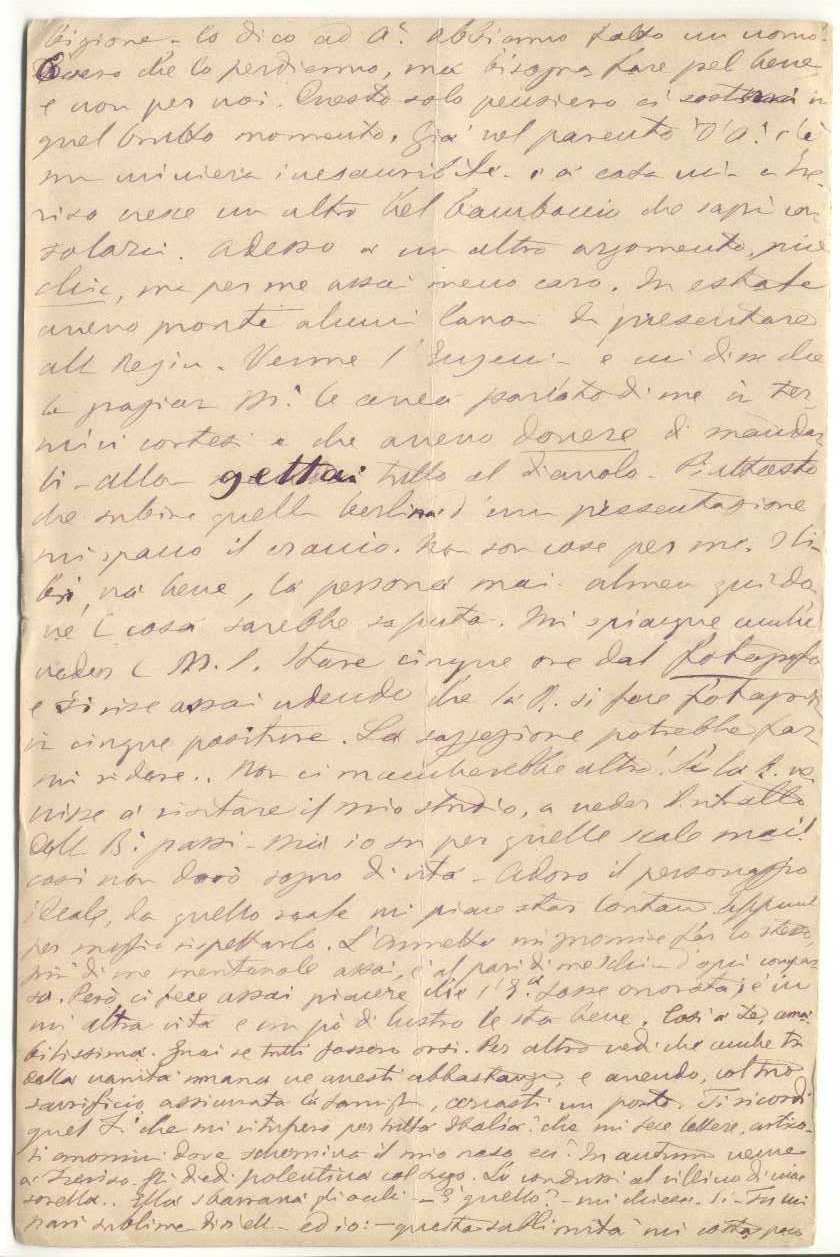 lo dico ad A. abbiamo fatto un uomo.
che lo perdiamo, ma bisogna fare pel bene
e non per noi. Questo solo pensiero ci in
quel brutto momento. Già nel parentado c'è
una miniera inesauribile. a casa mia a Tre-
viso cresce un altro bel bamboccio che saprà con
solarci. Adesso a un altro argomento, più
chic, ma per me assai meno caro. In estate
avevo pronti alcuni lavori da presentare
alla Regina. Venne l' e mi disse che
la M. le avea parlato di me in ter-
mini cortesi e che avevo dovere di mandar
li - allora gettai tutto al diavolo. Piuttosto
che subire quella berlina d'una presentazione
mi spacco il cranio. Non son cose per me. I li-
bri, va bene, la persona mai. almen quando
ne la cosa sarebbe saputa. Mi spiacque anche
veder la M. S. stare cinque ore dal fotografo
e si rise assai udendo che la R. si fece fotografar
in cinque positure. La soggezione potrebbe far
mi ridere.. Non ci mancherebbe altro! Se la R. ve-
nisse a visitare il mio studio, a veder
passi - ma io su per quelle scale mai!
così non darò segno di vita - Adoro il personaggio
ideale, da quello reale mi piace star lontan appunto
per meglio rispettarlo. L'Annetta mi promise far lo stesso,
più di me assai, è al pari di me schiva d'ogni compar
sa. Però ci fece assai piacere che l' fosse onorata; è in
un altra vita e un pò di lustro le sta bene. Così a te, ama
bilissima. Guai se tutti fossero orsi. Per altro vedi che anche tu
dalla vanità umana ne avesti abbastanza, e avendo, col tuo
sacrificio assicurata la famiglia, cercasti un porto. Ti ricordi
quel che mi vituperò per tutta Italia? che mi fece lettere, artico-
li anonimi dove scherniva il mio naso ecc? In autunno venne
a Treviso. Gli diedi polentina col sugo. Lo condussi al villino di mia
sorella.. Ella sbarrava gli occhi - È quello? - mi chiese. Sì -
sublime - ed io: - questa sublimità mi costa poco